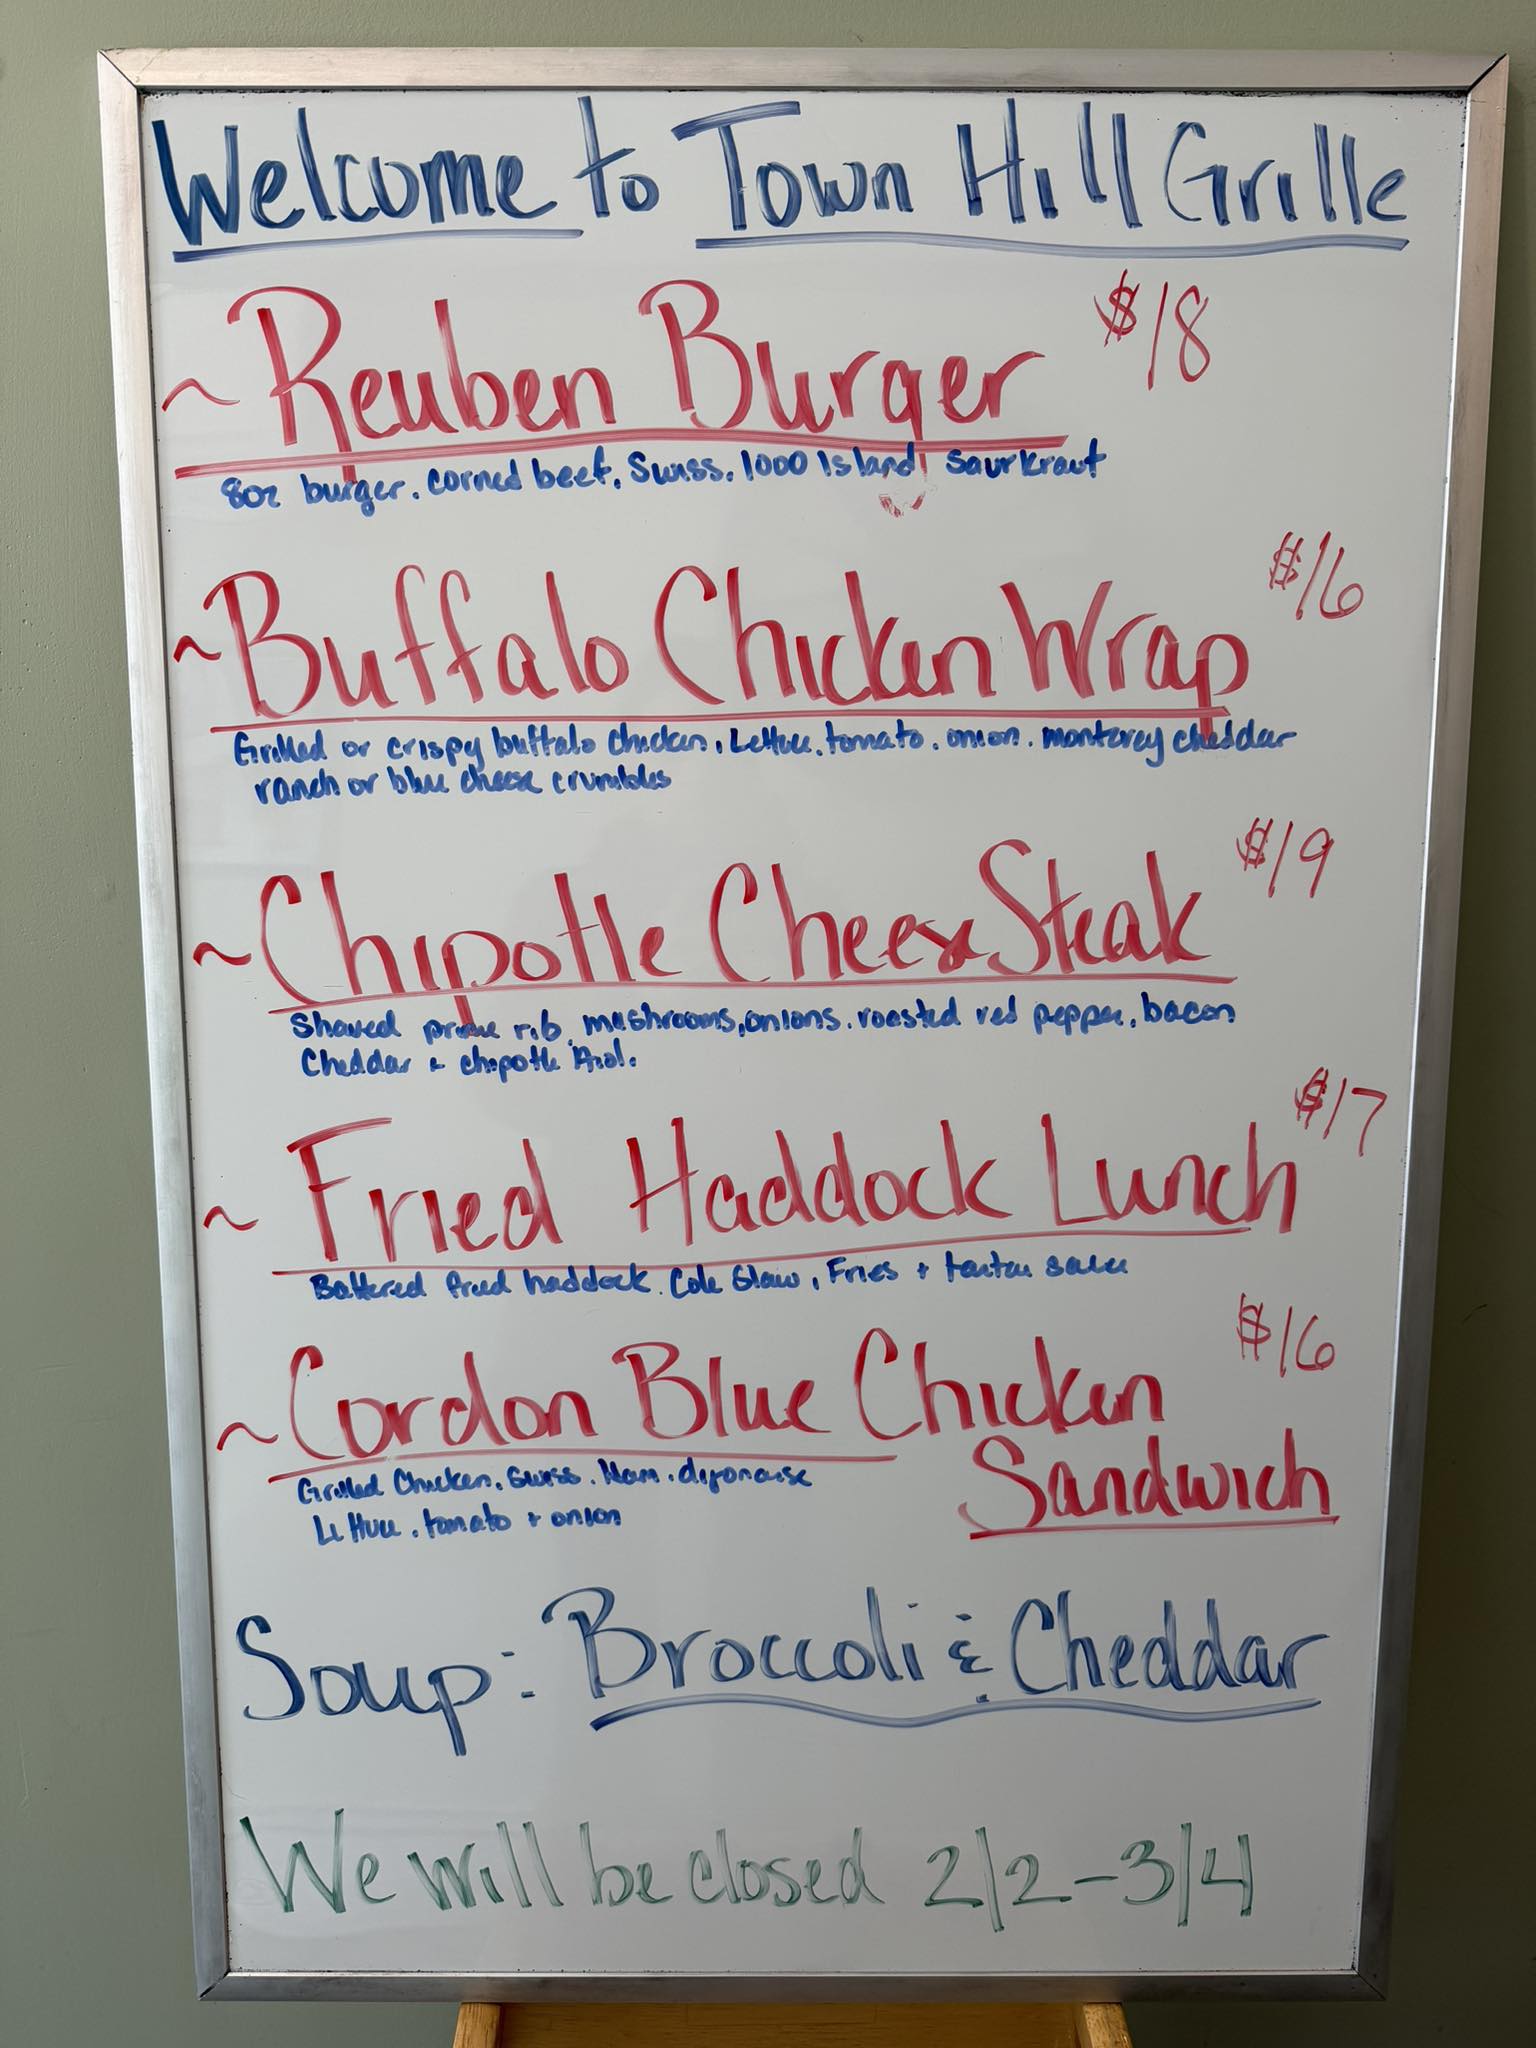 Welcome to Town Hill Grille
~ Reuben Burger $18
8oz burger, corned beef, Swiss, 1000 Island, Saurkraut
~ Buffalo Chicken Wrap $16
Grilled or crispy buffalo chicken, Lettuce, tomato, onion, monterey cheddar
ranch or blue cheese crumbles
~ Chipotle Cheese Steak $19
Shaved prime rib, mushrooms, onions, roasted red pepper, bacon
Cheddar + chipotle Aioli.
~ Fried Haddock Lunch $17
Battered fried haddock, Cole Slaw, Fries + tartar sauce
~ Cordon Blue Chicken $16
Sandwich
Grilled Chicken, Swiss, Ham, dijonaise
Lettuce, tomato + onion
Soup: Broccoli & Cheddar
We will be closed 2/2-3/4